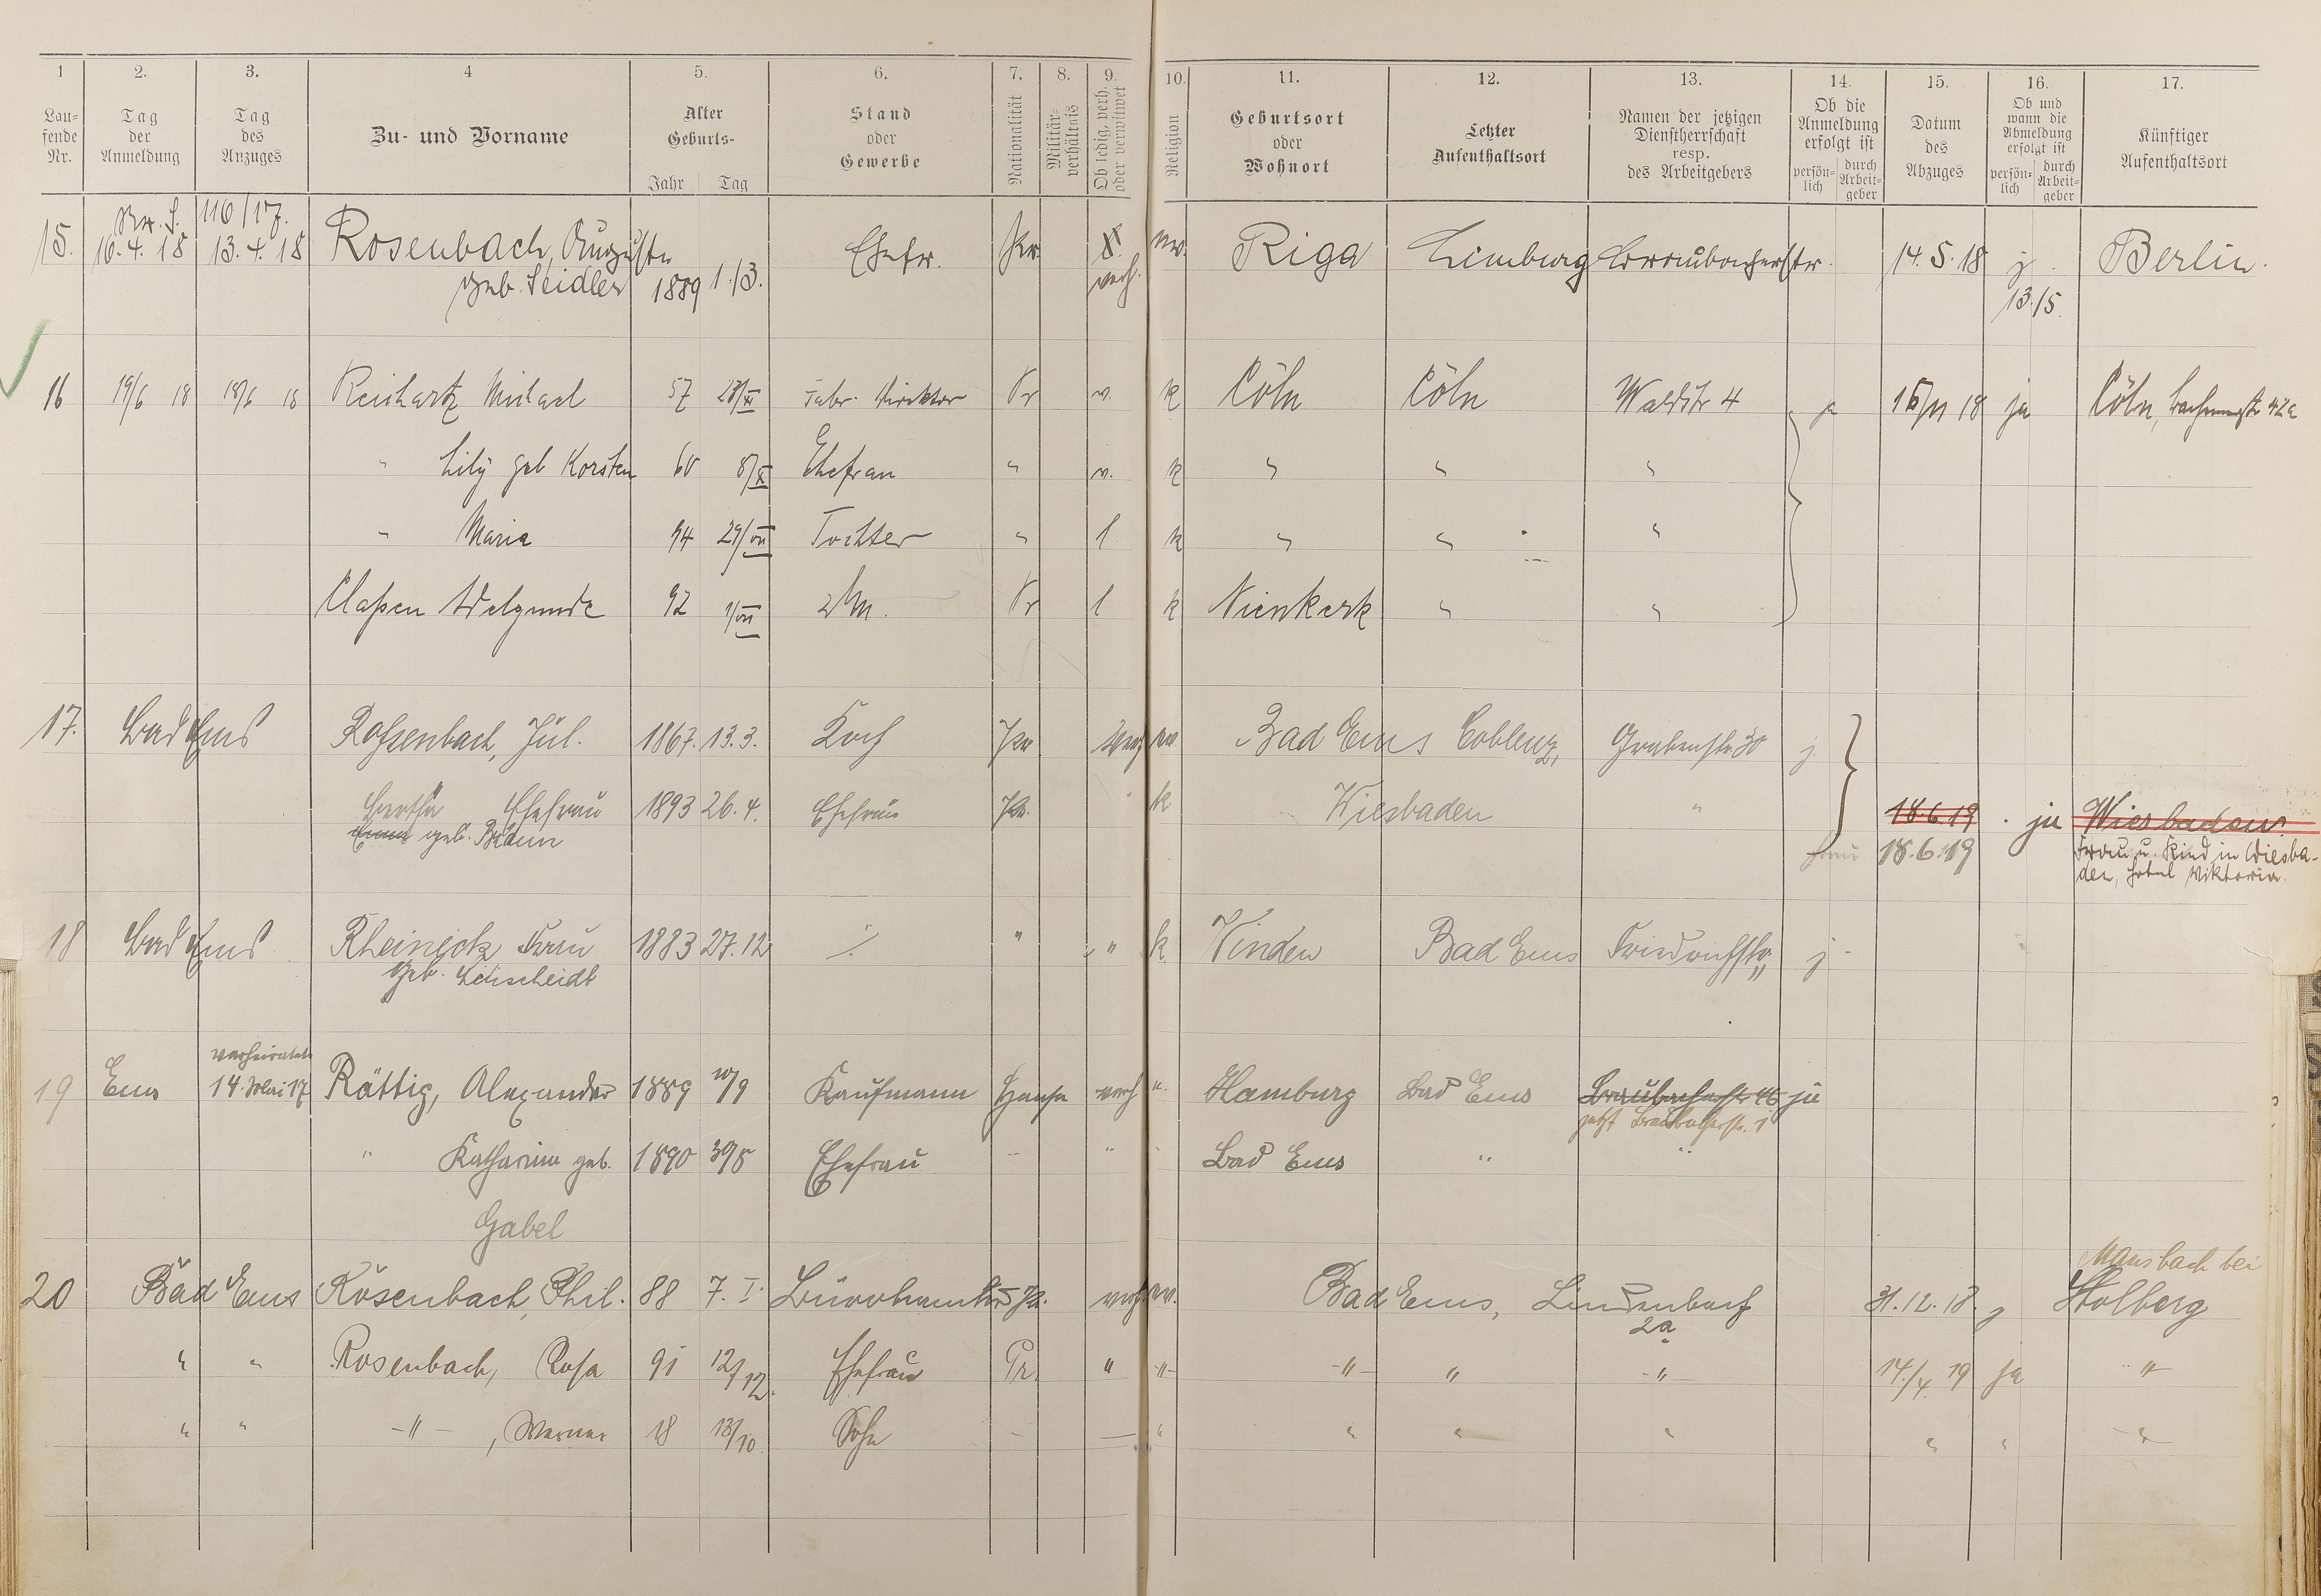 1 2. 3. 4 5. 6. 7. 8. 9. 10. 11. 12. 13. 14. 15. 16. 17.
Lau=
fende
Nr.
Tag
der
Anmeldung
Tag
des
Anzuges
Zu- und Vorname
Alter
Geburts-
Jahr Tag
Stand
oder
Gewerbe
Nationalität
Militär-
verhältnis
Ob ledig, verh.
oder verwitwet
Religion
Geburtsort
oder
Wohnort
Letzter
Aufenthaltsort
Namen der jetzigen
Dienstherrschaft
resp.
des Arbeitgebers
Ob die
Anmeldung
erfolgt ist
persön=
lich
durch
Arbeit=
geber
Datum
des
Abzuges
Ob und
wann die
Abmeldung
erfolgt ist
persön=
lich
durch
Arbeit=
geber
Künftiger
Aufenthaltsort
116/17.
15. 16.4.18 13.4.18 Rosenbach, Auguste Ehefr. Pr. verh. Riga Limburg Braubacherstr. 14.5.18 j. Berlin.
geb. Seidler 1889 1./3. 13./5.
16 19/6 18 18/6 18 Reichartz Michael 57 28/XI Fabr. Direktor Pr v. k Cöln Cöln Waldstr 4 ja 15/11 18 ja Cöln,
" Lily geb Korsten 60 8/X Ehefrau " v. k " " "
" Maria 94 29/VII Tochter " l k " " "
Claßen Adelgunde 92 1/VII Pr l k Nienkerk " "
17. Bad Ems Rosenbach, Jul. 1867. 13.3. Koch Pr verh Bad Ems Coblenz, Grabenstr. 30 j.
Bertha Ehefrau 1893 26.4. Ehefrau Pr. k Wiesbaden " 18.6.19 ja Wiesbaden.
Emma geb. Braun Frau 18.6.19 Frau u. Kind in Wiesba-
den, Hotel Viktoria.
18 Bad Ems Rheineck Frau 1883 27.12 " " k Winden Bad Ems Friedrichstr. j
geb. Letscheidt
verheiratet
19 Ems 14. Mai 17 Rättig, Alexander 1889 10/9 Kaufmann Hansa verh " Hamburg Bad Ems Braubacherstr 46 ja
jetzt Braubacherstr. 1
" Katharina geb. 1890 30/8 Ehefrau " " Bad Ems " "
Gabel
Mausbach bei
20 Bad Ems Rosenbach, Phil. 88 7. I. Bürobeamter Pr. verh. Bad Ems, Lindenbach 31.12.18. j Stolberg
2a
" " Rosenbach, Rosa 91 12/12. Ehefrau Pr. " -"- -"- " -"- 14./4. 19 ja "
" " -"- , Werner 18 13/10 Sohn - - " " " " " " "